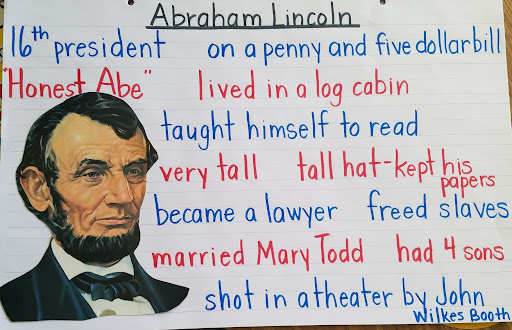 Abraham Lincoln
16th president on a penny and five dollar bill
"Honest Abe" lived in a log cabin
taught himself to read
very tall tall hat-kept his
papers
became a lawyer freed slaves
married Mary Todd had 4 sons
shot in a theater by John
Wilkes Booth